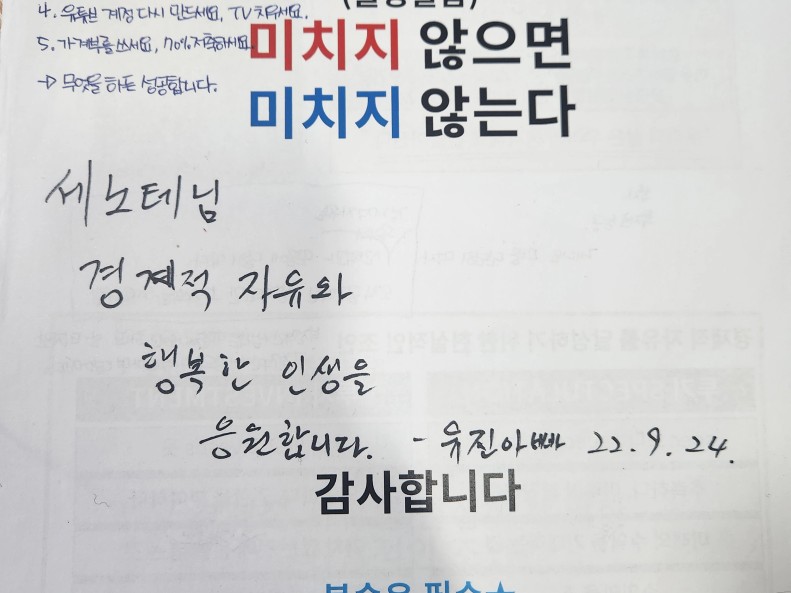 4. 유튜브 계정 다시 만드세요, TV 치우세요.
5. 가계부를 쓰세요, 70% 저축하세요
→ 무엇을 하든 성공합니다.
미치지 않으면
미치지 않는다
세노테님
경제적 자유와
행복한 인생을
응원합니다. - 유진아빠 22.9.24.
감사합니다